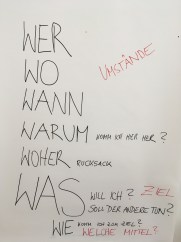 WER
UMSTÄNDE
WO
WANN
WARUM KOMM ICH HER HER?
WOHER RUCKSACK
WAS WILL ICH? ZIEL
SOLL DER ANDERE TUN?
WIE KOMM ICH ZUM ZIEL?
WELCHE MITTEL?